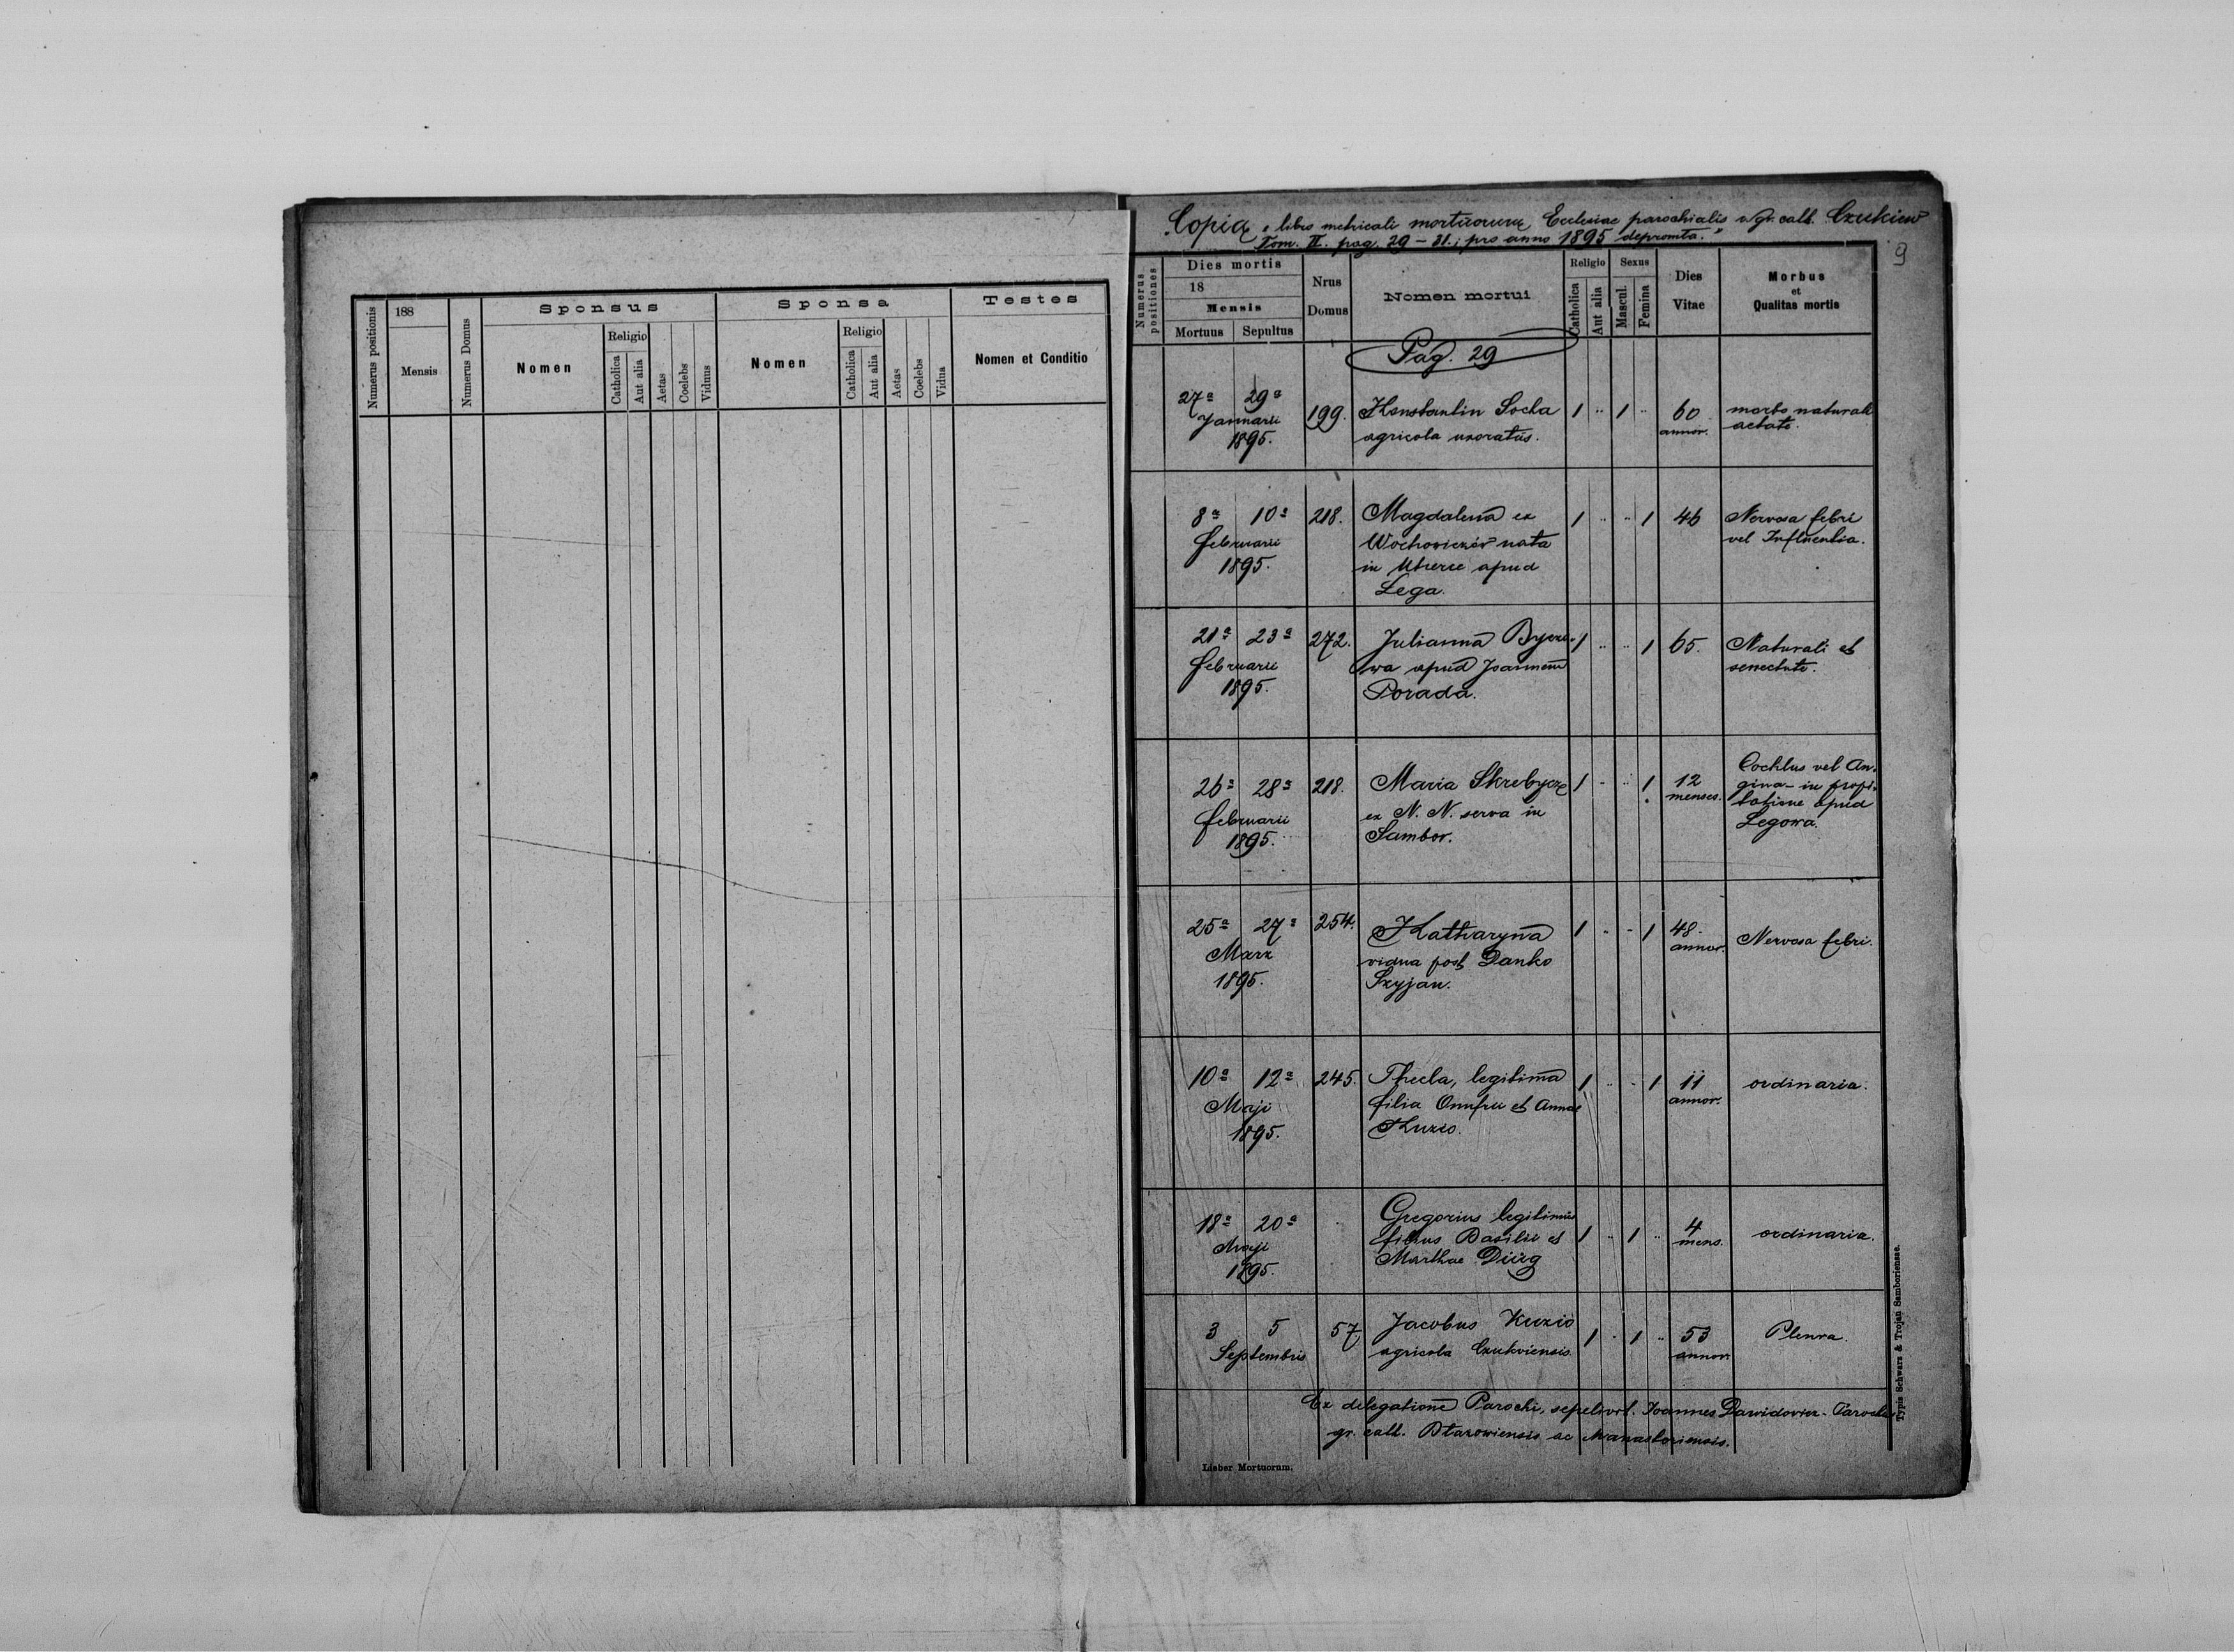 Numerus positionis
188
Mensis
Numerus Domus
Sponsus
Nomen
Religio
Catholica
Aut alia
Aetas
Coelebs
Viduus
Sponsa
Nomen
Religio
Catholica
Aut alia
Aetas
Coelebs
Vidua
Testes
Nomen et Conditio
Copia "libro metricali mortuorum Ecclesiae parochialis r. gr. cath. Czukiew
Tom. II. pag. 29 – 31.; pro anno 1895 depromta."
9
Numerus positiones
Dies mortis
18
Mensis
Mortuus Sepultus
Nrus Domus
Nomen mortui
Religio
Catholica
Aut alia
Sexus
Mascul.
Femina
Dies Vitae
Morbus
et
Qualitas mortis
Pag. 29
27a 29a 199. Konstantin Socha 1 .. 1 .. 60 morbo naturali
Januarii agricola uxoratus. annor. aetate.
1895.
8a 10a 218. Magdalena ex 1 .. .. 1 46 Nervosa febri
februarii nata vel Influentia.
1895. in apud
Lega.
21a 23a 272. Julianna 1 .. .. 1 65. Naturali et
februarii apud Joannem senectute.
1895. Porada.
26a 28a 218. Maria Skrebycz 1 .. .. 1 12 vel An-
februarii ex N. N. serva in menses. gina in
1895. Sambor. apud
Legowa.
25a 27a 254. Katharyna 1 .. .. 1 48. Nervosa febri.
Marz vidua post Danko annor.
1895. Szyjan.
10a 12a 245. Thecla, legitima 1 .. .. 1 11 ordinaria.
Maji filia Onufrii et Annae annor.
1895. Kuzio.
18a 20a Gregorius legitimus 1 .. 1 .. 4 ordinaria.
Maji filius Basilii et mens.
1895. Marthae
3 5 57 Jacobus Kuzio 1 .. 1 .. 53 Pleura.
Septembris agricola Czukviensis. annor.
Ex delegatione Parochi, sepelivit. Joannes Dawidowicz - Parochus
gr. cath. ac
Lieber Mortuorum.
Typis Schwarz & Trojan Samboriensae.